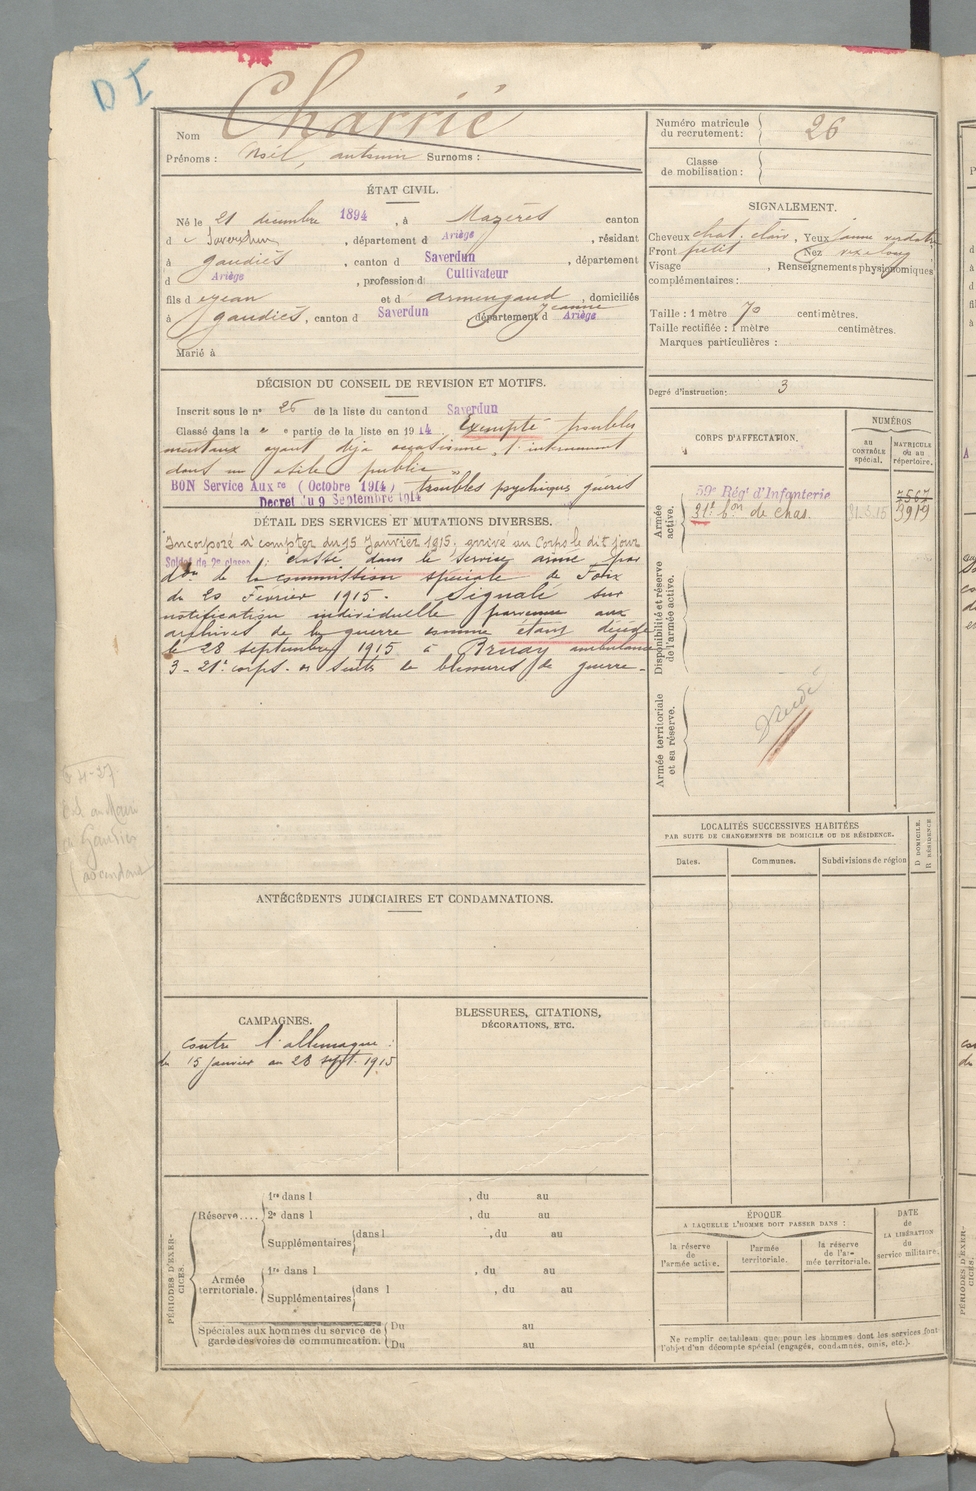 D I
Nom Charrié
Prénoms : Noël, antonin Surnoms :
Numéro matricule du recrutement : 26
Classe de mobilisation :
ÉTAT CIVIL.
Né le 21 décembre 1894, à Mazères canton
d e Saverdun, département d Ariège, résidant
à gaudiès, canton d Saverdun, département
d Ariège, profession d Cultivateur
fils d e jean et d armengaud jeanne, domiciliés
à gaudiès, canton d Saverdun département d Ariège
Marié à
SIGNALEMENT.
Cheveux chat. clair, Yeux jaune verdatre
Front petit Nez
Visage , Renseignements physionomiques
complémentaires :
Taille : 1 mètre 70 centimètres.
Taille rectifiée : 1 mètre centimètres.
Marques particulières :
Degré d'instruction : 3
DÉCISION DU CONSEIL DE REVISION ET MOTIFS.
Inscrit sous le nº 26 de la liste du canton d Saverdun
Classé dans la e partie de la liste en 1914. Exempté troubles
mentaux ayant déjà occasionné l'internement
dans un asile public
BON Service Auxre (Octobre 1914) troubles psychiques gueris
Decret du 9 Septembre 1914
DÉTAIL DES SERVICES ET MUTATIONS DIVERSES.
Incorporé à compter du 15 Janvier 1915, arrivé au Corps le dit jour
Soldat de 2e classe. classé dans le service armé par
don de la commission spéciale de Foix
du 20 Fevrier 1915. Signalé sur
notification individuelle parvenue aux
archives de la guerre comme étant décédé
le 28 septembre 1915 à Bruay ambulance
3 - 21e corps. suite de blessures de guerre.
CORPS D'AFFECTATION.
NUMÉROS
au CONTRÔLE spécial.
MATRICULE ou au répertoire.
Armée active.
59e Rég t d'Infanterie 7567
31e bon de chas 3919
Disponibilité et réserve de l'armée active.
Armée territoriale et sa réserve.
LOCALITÉS SUCCESSIVES HABITÉES
PAR SUITE DE CHANGEMENTS DE DOMICILE OU DE RÉSIDENCE.
Dates. Communes. Subdivisions de région
D DOMICILE.
R RÉSIDENCE
ANTÉCÉDENTS JUDICIAIRES ET CONDAMNATIONS.
CAMPAGNES.
contre l'allemagne :
du 15 Janvier au 28 sept. 1915
BLESSURES, CITATIONS,
DÉCORATIONS, ETC.
PÉRIODES D'EXERCICES.
Réserve.... 1re dans l , du au
2e dans l , du au
Supplémentaires dans l , du au
Armée territoriale. 1re dans l , du au
Supplémentaires dans l , du au
Spéciales aux hommes du service de garde des voies de communication. Du au
Du au
ÉPOQUE
A LAQUELLE L'HOMME DOIT PASSER DANS :
la réserve de l'armée active.
l'armée territoriale.
la réserve de l'armée territoriale.
DATE de LA LIBÉRATION du service militaire.
Ne remplir ce tableau que pour les hommes dont les services font
l'objet d'un décompte spécial (engagés, condamnés, omis, etc.).